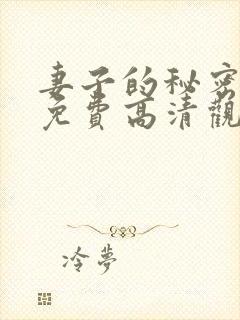 妻子的秘密
免費高清觀
冷夢